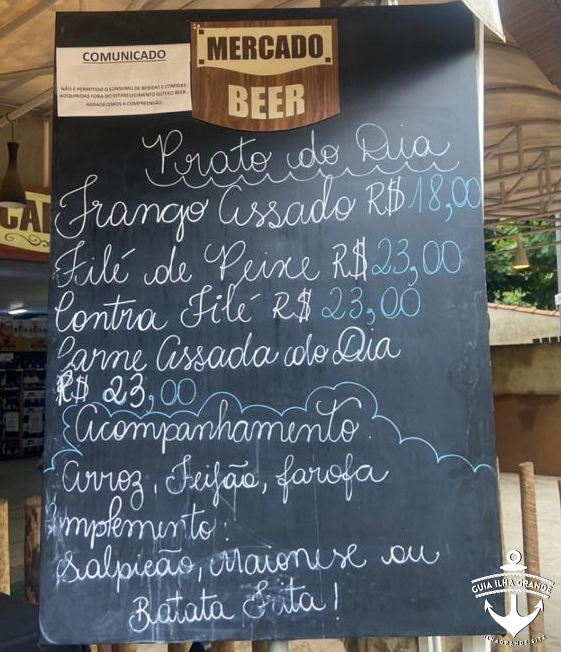 COMUNICADO
NÃO É PERMITIDO O CONSUMO DE BEBIDAS E COMIDAS
ADQUIRIDAS FORA DO ESTABELECIMENTO BUTEKO BEER.
AGRADECEMOS A COMPREENSÃO.
MERCADO
BEER
Prato do Dia
Frango Assado R$ 18,00
Filé de Peixe R$ 23,00
Contra Filé R$ 23,00
Carne Assada do Dia
R$ 23,00
Acompanhamento:
Arroz, Feijão, farofa
Implemento:
Salpicão, Maionese ou
Batata Frita!
GUIA ILHA GRANDE
ILHAGRANDE.SITE